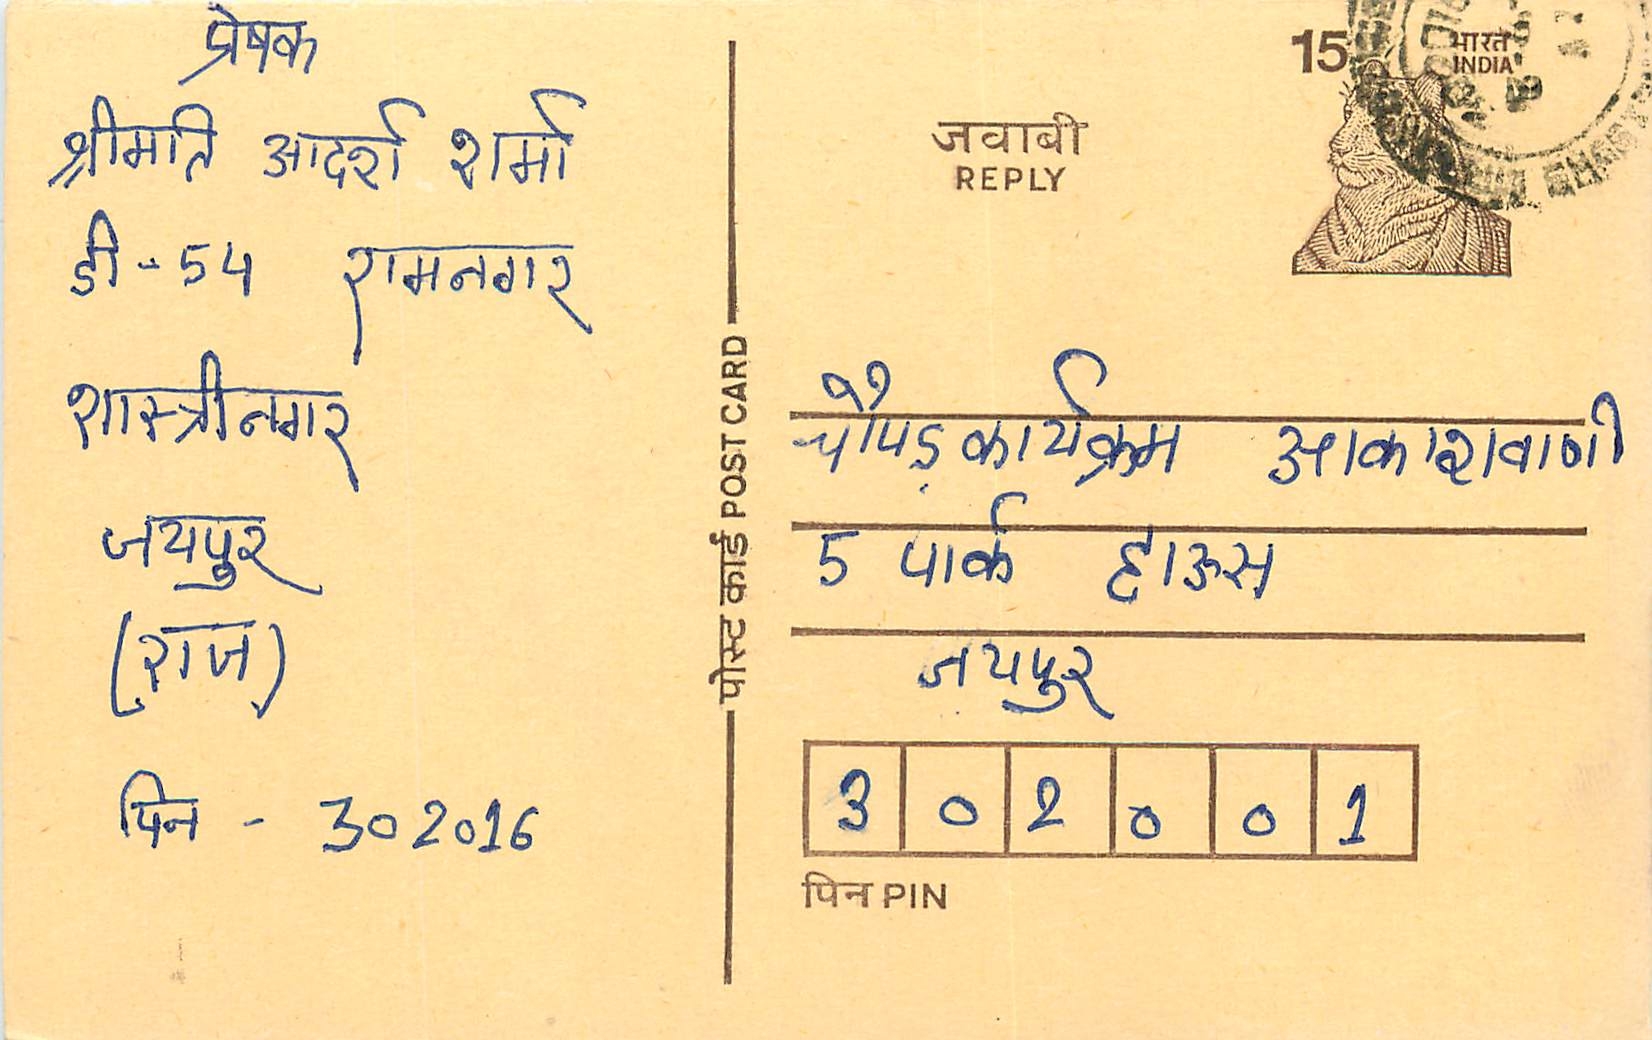 प्रेषक
श्रीमति आदर्श शर्मा
डी - 54 रामनगर
शास्त्रीनगर
जयपुर
(राज)
पिन - 302016
पोस्ट कार्ड POST CARD
15 भारत
INDIA
जवाबी
REPLY
चौपड़ कार्यक्रम आकाशवाणी
5 पार्क हाऊस
जयपुर
3 0 2 0 0 1
पिन PIN